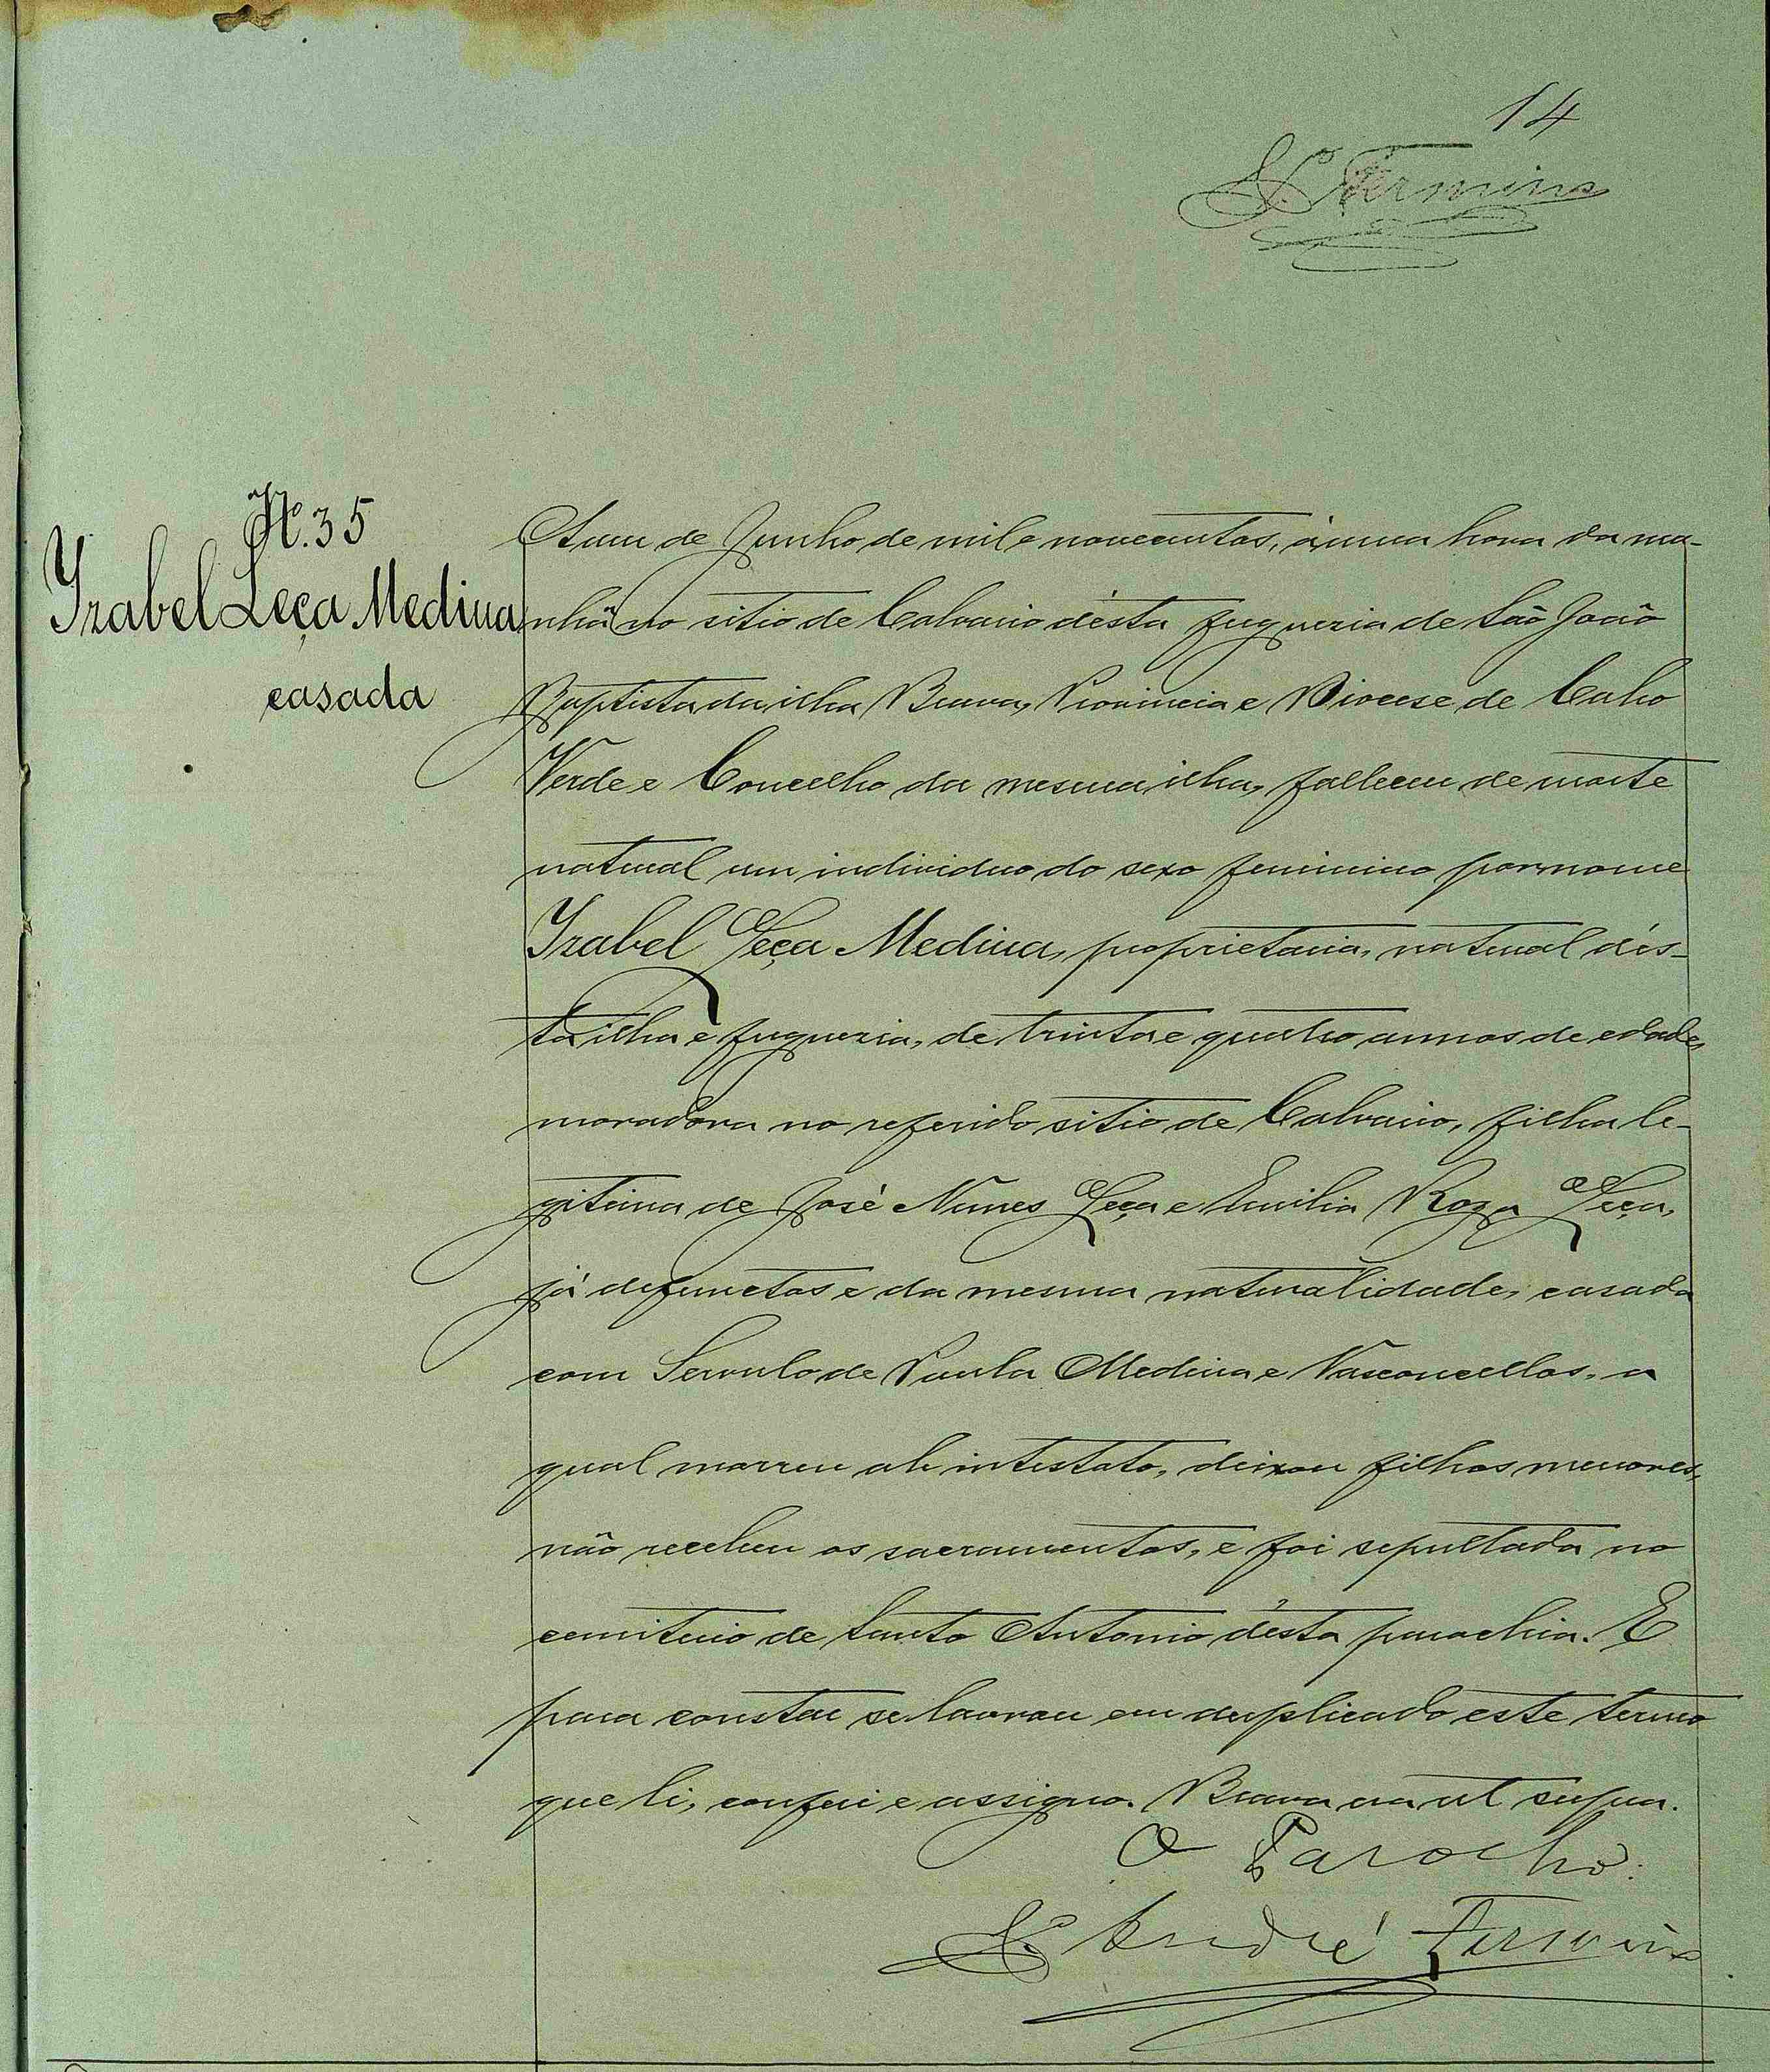 14
Firmino
N.º 35
Izabel Leça Medina
casada
A um de Junho de mil e novecentos, á uma hora da ma-
nhã no sitio de Calvario désta freguezia de São João
Baptista da ilha Brava, Provincia e Diocese de Cabo
Verde e Concelho da mesma ilha, falleceu de morte
natural um individuo do sexo feminino por nome
Izabel Leça Medina, proprietaria, natural dés-
ta ilha e freguezia, de trinta e quatro annos de edade,
moradora no referido sitio de Calvario, filha le-
gitima de José Nunes Leça e Emilia Roza Leça,
já defunctos e da mesma naturalidade, casada
com Servulo de Paula Medina e Vasconcellos, a
qual morreu ab intestato, deixou filhos menores,
não recebeu os sacramentos, e foi sepultada no
cemiterio de Santo Antonio désta parochia. E
para constar se lavrou em duplicado este termo
que li, conferi e assigno. Brava era ut supra.
O Parocho:
André Firmino